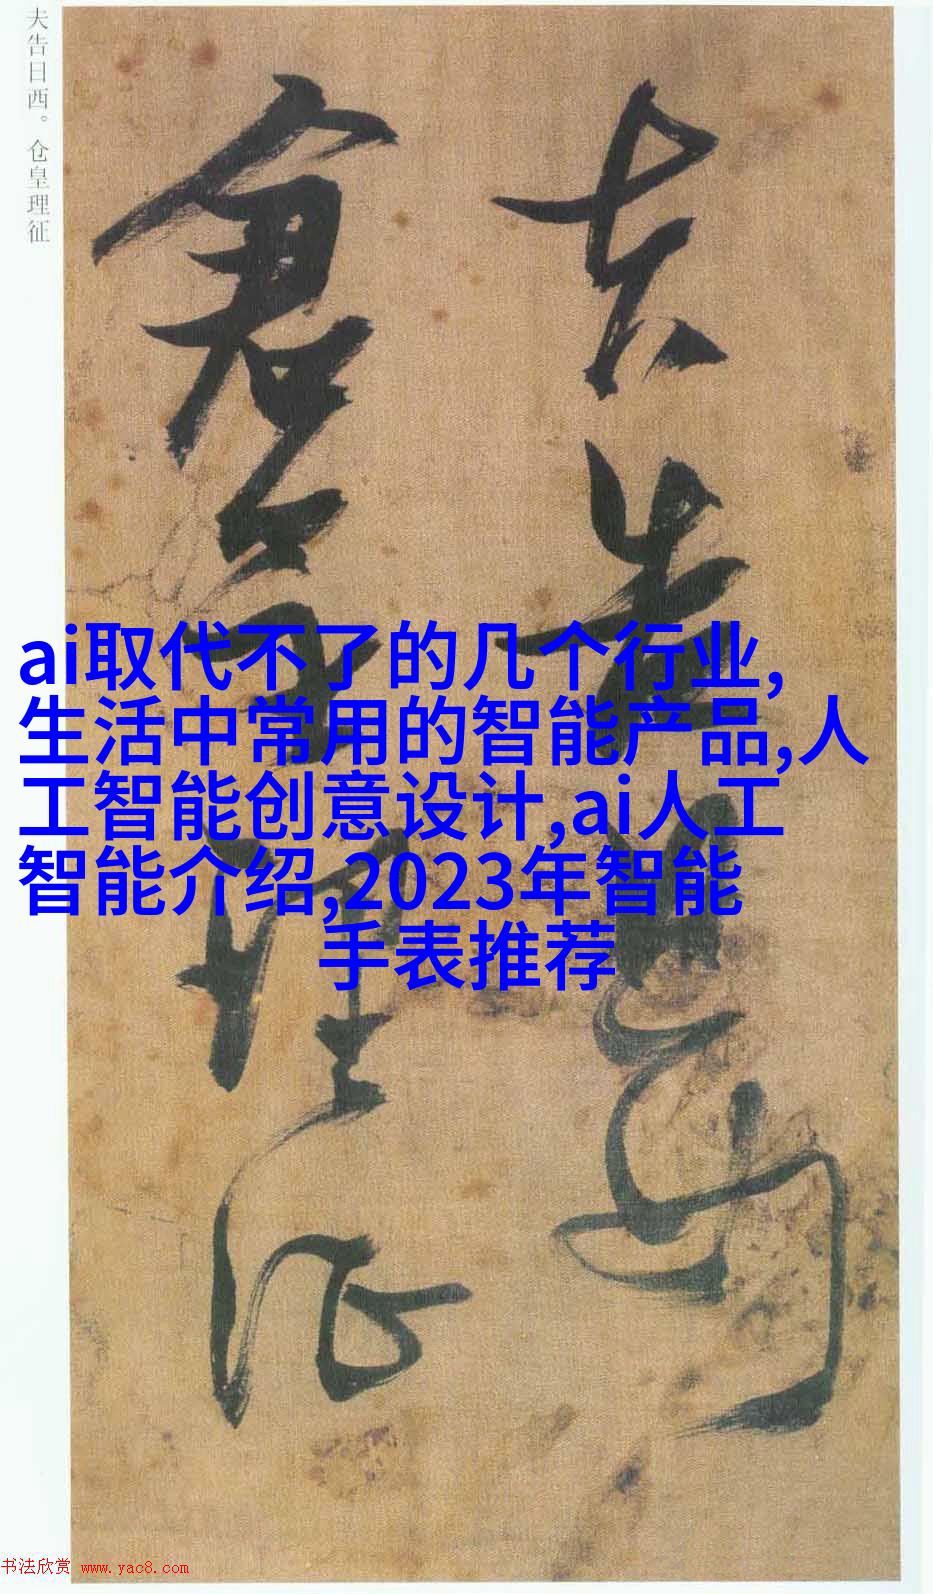 夫告日西。仓皇理征
夫告日西
倉皇理征
ai取代不了的几个行业,
生活中常用的智能产品,人
工智能创意设计,ai人工
智能介绍,2023年智能
手表推荐
书法欣赏 www.yac8.com